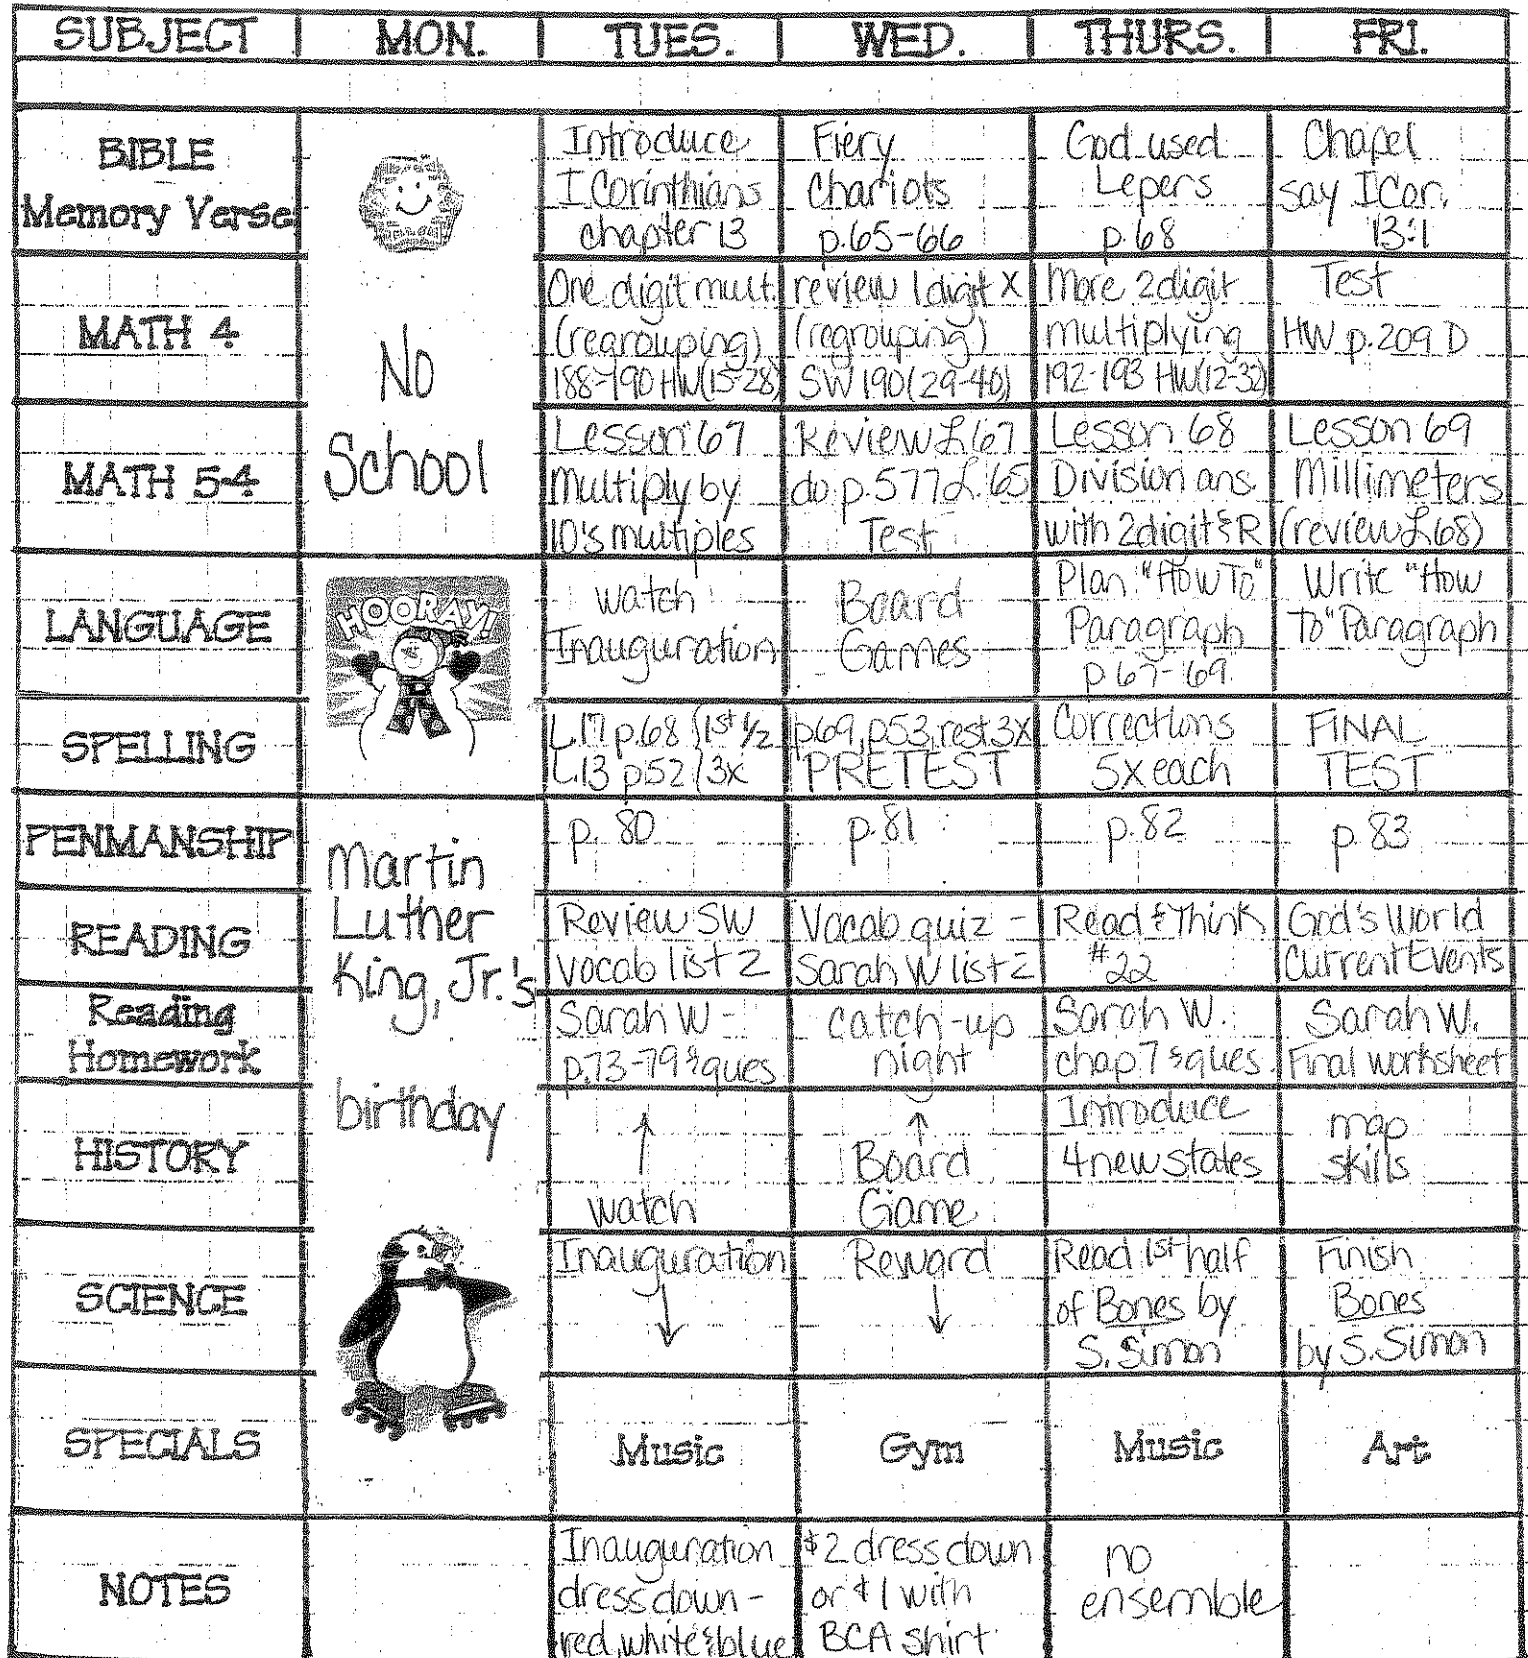 SUBJECT MON. TUES. WED. THURS. FRI.
BIBLE
Memory Verse
Introduce
I Corinthians
chapter 13
Fiery
Chariots
p.65-66
God used
Lepers
p.68
Chapel
say I Cor.
13:1
MATH 4
No
School
One digit mult.
(regrouping)
188-190 HW(15-28)
review 1digit X
(regrouping)
SW 190(29-40)
More 2digit
multiplying
192-193 HW(12-32)
Test
HW p.209 D
MATH 54
Lesson 67
Multiply by
10's multiples
Review L.67
do p.577 L.65
Test
Lesson 68
Division ans.
with 2digit & R
Lesson 69
Millimeters
(review L68)
LANGUAGE
HOORAY!
watch
Inauguration
Board
Games
Plan "How To"
Paragraph
p.67-69
Write "How
To" Paragraph
SPELLING
L.17 p.68 {1st 1/2
L.13 p.52 {3x
p69, p53, rest 3x
PRETEST
Corrections
5x each
FINAL
TEST
PENMANSHIP
Martin
Luther
King, Jr.'s
birthday
p. 80
p.81
p.82
p.83
READING
Review SW
vocab list 2
Vocab quiz -
Sarah W list 2
Read & Think
#22
God's World
Current Events
Reading
Homework
Sarah W -
p.73-79 & ques
catch-up
night
Sarah W.
chap.7 & ques.
Sarah W.
Final worksheet
HISTORY
↑
watch
↑
Board
Game
Introduce
4 new states
map
skills
SCIENCE
Inauguration
↓
Reward
↓
Read 1st half
of Bones by
S. Simon
Finish
Bones
by S. Simon
SPECIALS
Music
Gym
Music
Art
NOTES
Inauguration
dress down -
red, white & blue
$2 dress down
or $1 with
BCA shirt
no
ensemble